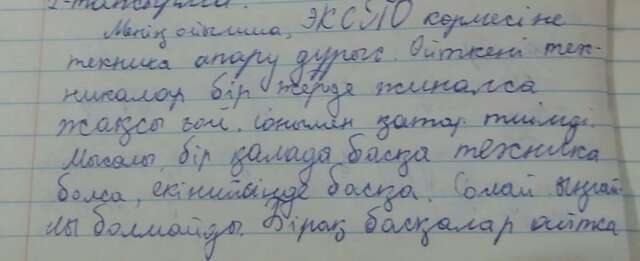 2-тапсырма.
Менің ойымша, ЭКСПО көрмесіне
техника апару дұрыс. Өйткені тех-
никалар бір жерде жиналса
жақсы ғой. Сонымен қатар тиімді.
Мысалы, бір қалада басқа техника
болса, екіншісінде басқа. Солай ыңғай-
лы болмайды. Бірақ басқалар айтқа